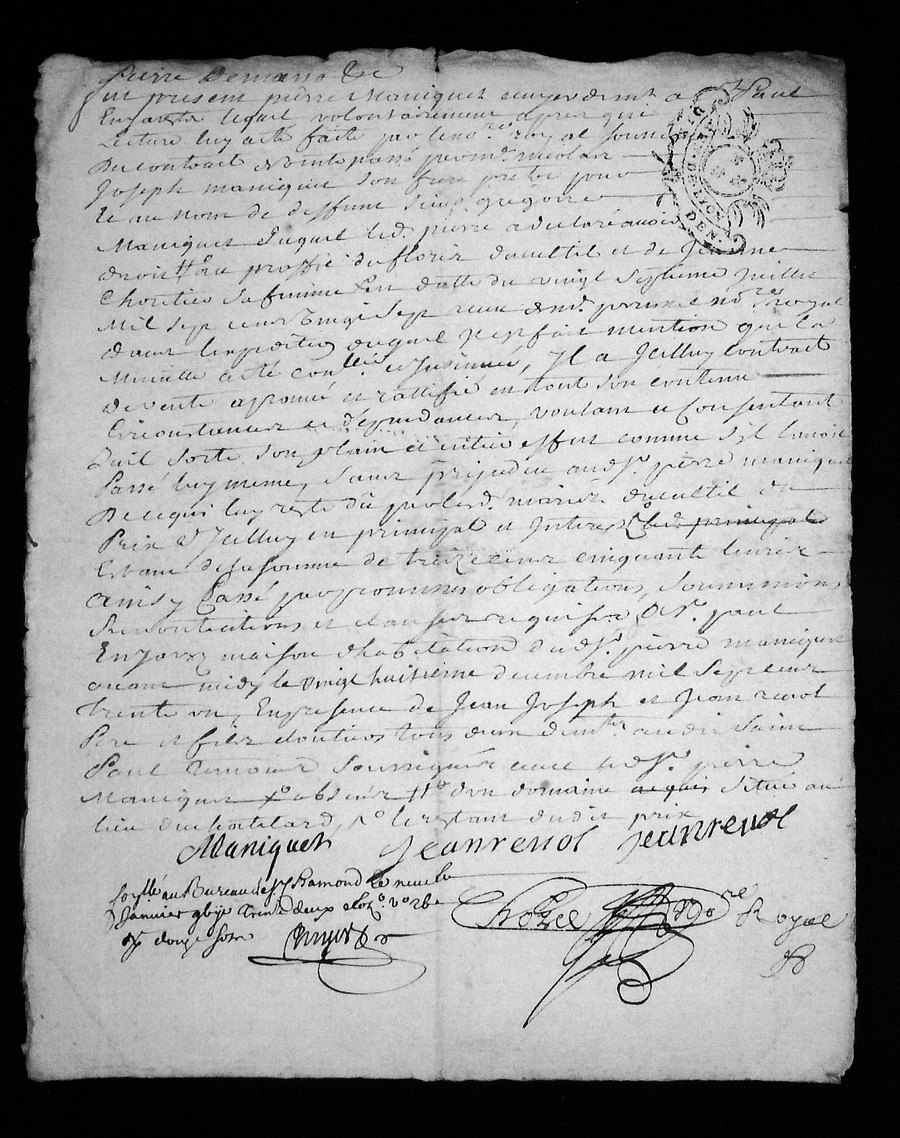 fut present pierre Maniquet demeurant a St Paul
En Jarez lequel volontairement apres que
Lecture luy a eté faite par le nore royal soussigné
Du contrat de vente passé par mr. nicolas
Joseph maniquet son frere prêtre pour
Et au nom de deffunt Grégoire
Maniquet Duquel led. pierre a declaré avoir
droit au proffit de fleuris ducultil et de Jeanne
sa femme En datte du vingt Septieme Juillet
Mil Sept cent vingt Sept receu nore royal
dans lexpedition duquel il est fait mention que la
Minutte a eté conllée et Insinuée, Il a Icelluy contrat
de vente aprouvé et rattifié en tout son contenu
Circonstances et dépendances, voulant et Consentant
Quil sorte son plain et entier effect comme s'il l'avoit
Passé luy meme, sans préjudice aud. Sr. pierre maniquet
De ce qui luy reste dû par led. mariés ducultil du
Prix d'Icelluy en principal et Interest principal
Estant de la somme de treize cent cinquante livres
Ainsy Passé par promesses obligations, soumissions
renontiations et clauses requises a St. paul
En Jarez maison d'habitation dud. Sr. pierre maniquet
avant midy le vingt huitième decembre mil Sept cent
trente un, En presence de Jean Joseph et Jean renol
Pere et fils cloutiers tous deux demts. audit Saint
Paul temoins soussignés avec led. Sr. pierre
Maniquet dun domaine acquis situé au
lieu du chatelard, le restant dudit prix
Maniquet Jeanrenol Jeanrenol
au Bureau de St Chamond le neufe
Janvier trente deux
douze sols
nore Royal